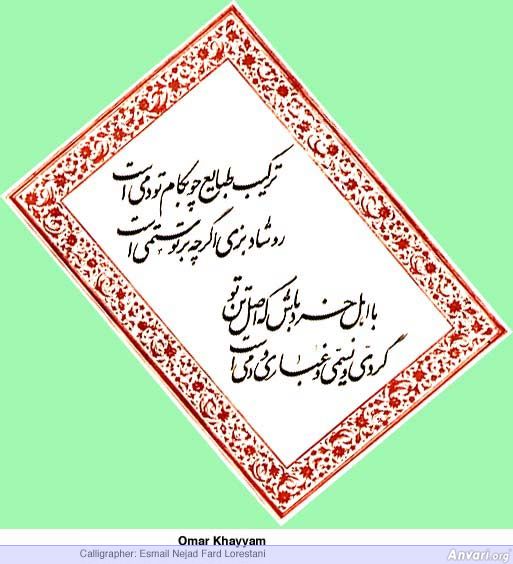 ترکیب طبایع چو بکام تو دمی است
رو شاد بزی اگرچه بر تو ستمی است
با اهل خرد باش که اصل تن تو
گردی و نسیمی و غباری و دمی است
Omar Khayyam
Calligrapher: Esmail Nejad Fard Lorestani
Anvari.org